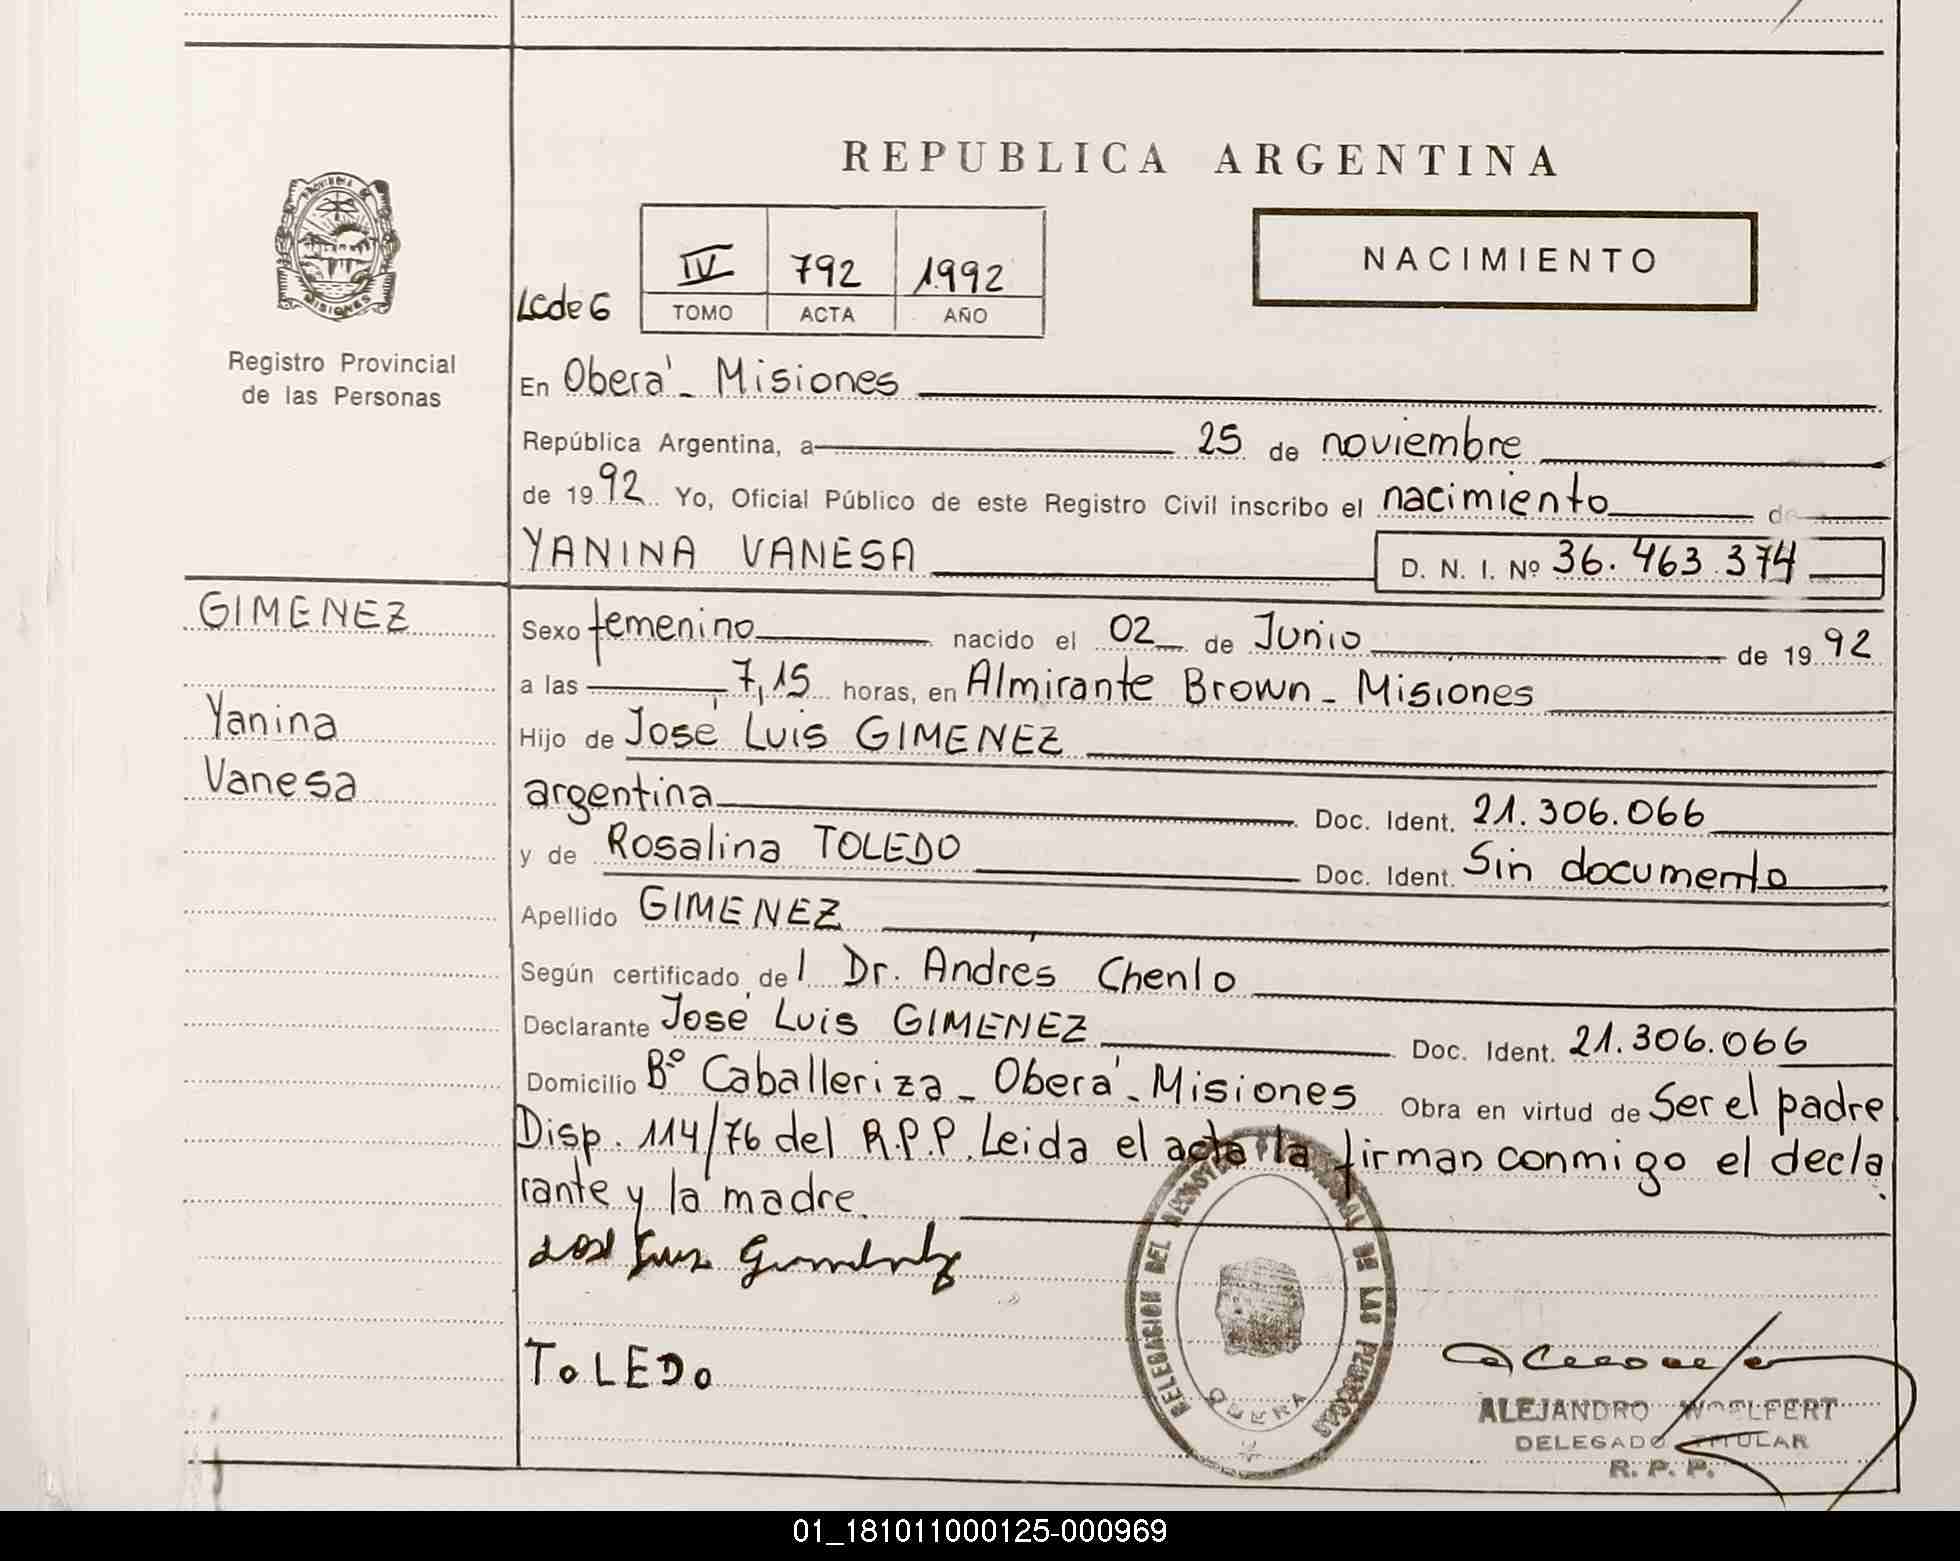 REPUBLICA ARGENTINA
PROVINCIA DE
MISIONES
Registro Provincial
de las Personas
Lcde6
IV 792 1992
TOMO ACTA AÑO
NACIMIENTO
En Oberá - Misiones
República Argentina, a 25 de noviembre
de 1992 Yo, Oficial Público de este Registro Civil inscribo el nacimiento de
YANINA VANESA D. N. I. Nº 36.463.374
GIMENEZ
Yanina
Vanesa
Sexo femenino nacido el 02 de Junio de 1992
a las 7,15 horas, en Almirante Brown - Misiones
Hijo de José Luis GIMENEZ
argentina Doc. Ident. 21.306.066
y de Rosalina TOLEDO Doc. Ident. Sin documento
Apellido GIMENEZ
Según certificado de l Dr. Andrés Chenlo
Declarante José Luis GIMENEZ Doc. Ident. 21.306.066
Domicilio Bº Caballeriza - Oberá - Misiones Obra en virtud de Ser el padre
Disp. 114/76 del R.P.P. Leida el acta la firman conmigo el decla
rante y la madre.
José Luis Gimenez
TOLEDO
DELEGACION DEL REGISTRO PROVINCIAL DE LAS PERSONAS
OBERA
ALEJANDRO WOELFERT
DELEGADO TITULAR
R. P. P.
01_181011000125-000969